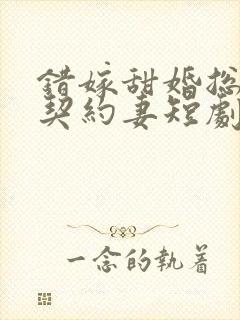 錯嫁甜婚總
契約妻短劇
一念的執着